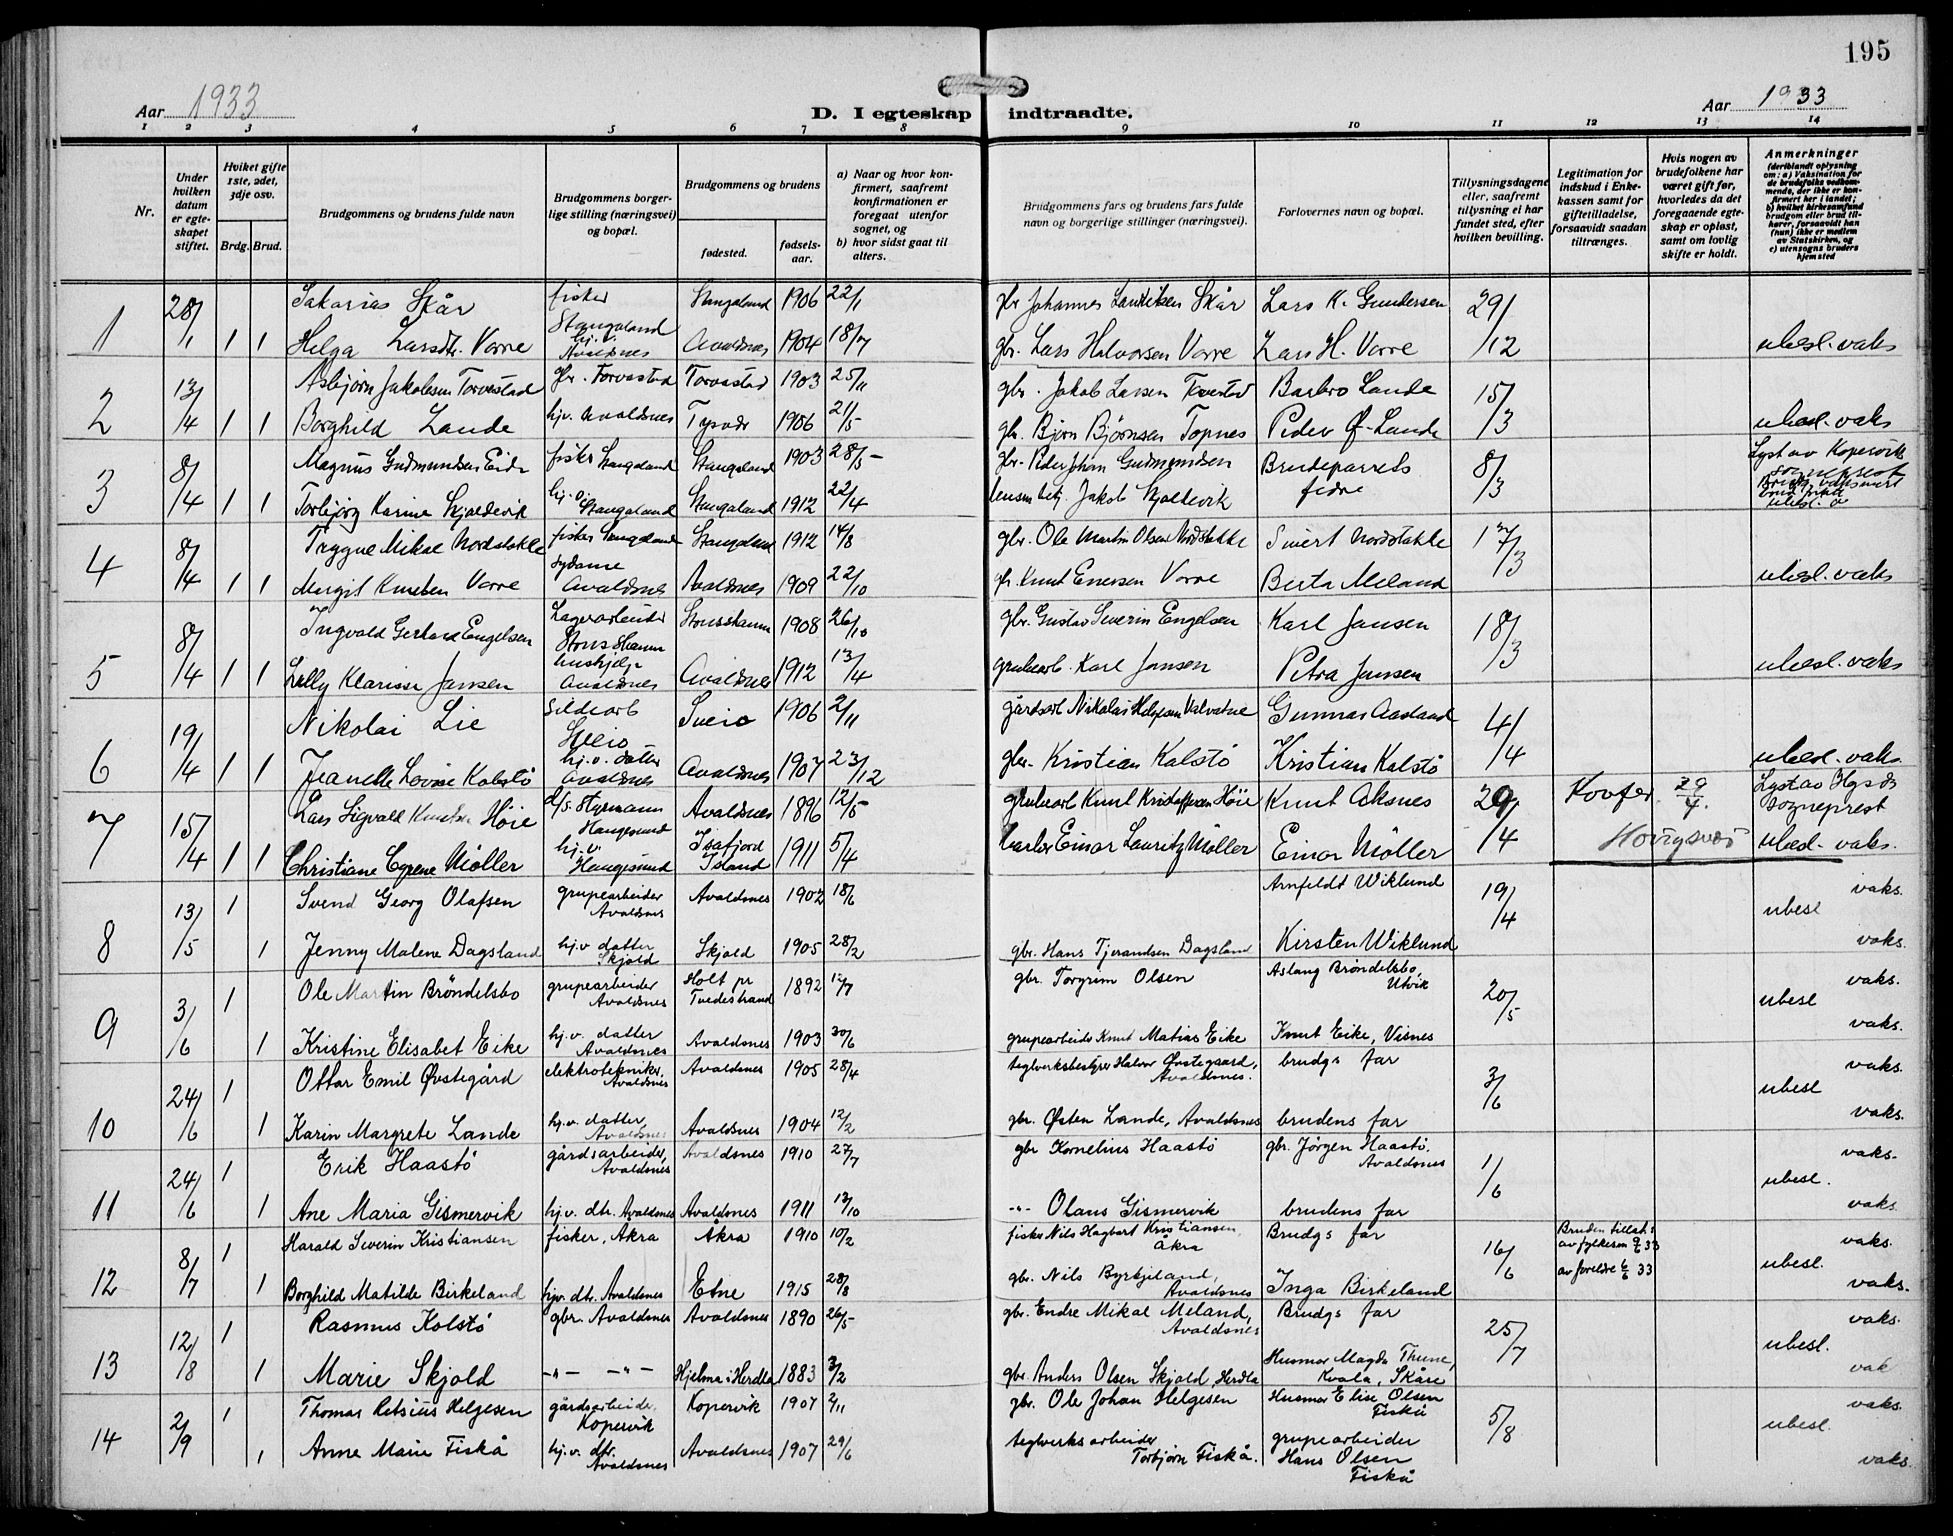 195
Aar 1933
D. I egteskap indtraadte.
Aar 1933
1 2 3 4 5 6 7 8 9 10 11 12 13 14
Nr.
Under hvilken datum er egteskapet stiftet.
Hvilket gifte 1ste, 2det, 3dje osv.
Brdg. Brud.
Brudgommens og brudens fulde navn
Brudgommens borgerlige stilling (næringsvei) og bopæl.
Brudgommens og brudens
fødested.
fødselsaar.
a) Naar og hvor konfirmert, saafremt konfirmationen er foregaat utenfor sognet, og
b) hvor sidst gaat til alters.
Brudgommens fars og brudens fars fulde navn og borgerlige stillinger (næringsvei).
Forlovernes navn og bopæl.
Tillysningsdagene eller, saafremt tillysning ei har fundet sted, efter hvilken bevilling.
Legitimation for indskud i Enkekassen samt for giftetilladelse, forsaavidt saadan tiltrænges.
Hvis nogen av brudefolkene har været gift før, hvorledes da det foregaaende egteskap er opløst, samt om lovlig skifte er holdt.
Anmerkninger
(deriblandt oplysning om: a) Vaksination for de brudefolks vedkommende, der ikke er konfirmert her i landet; b) hvilket kirkesamfund brudgom eller brud tilhører, forsaavidt han (hun) ikke er medlem av Statskirken, og c) utensogns bruders hjemsted
1 28/1 Sakarias Skår fisker Stangaland Stangaland 1906 22/1 gbr Johannes Skår Lars K. Gundersen 29/12
1 1 Helga Larsdtr. Vorre hj.v. Avaldsnes Avaldsnes 1904 18/7 gbr. Lars Halvorsen Vorre Lars H. Vorre ubesl. vaks
2 13/4 Asbjørn Jakobsen Torvestad gbr. Torvastad Torvastad 1903 25/11 gbr. Jakob Larsen Barbro Lande 15/3
1 1 Borghild Lande hj.v. Avaldsnes Tysvær 1906 21/5 gbr. Bjørn Bjørnsen Topnes Peder Ø. Lande ubesl. vaks
3 8/4 Magnus Gudmundsen Eide fisker Stangaland Stangaland 1903 28/5 gbr. Peder Johan Gudmundsen Brudeparrets fedre 8/3 Lyst av Kopervik sogneprest
1 1 Torbjørg Karine hj.v. Stangaland Stangaland 1912 22/4 Jakob ubesl.
4 8/4 Trygve Mikal Nordstokke fisker Stangaland Stangaland 1912 14/8 gbr. Ole Martin Olsen Nordstokke Sivert Nordstokke 17/3
1 1 Margit Knutsen Vorre sydame Avaldsnes Avaldsnes 1909 22/10 gbr. Knut Vorre Berta Meland ubesl. vaks
5 8/4 Ingvald Gerhard Engelsen Lagerarbeider 1908 26/10 gbr. Gustav Severin Engelsen Karl Jansen 18/3
1 1 Lilly Klarisse Jansen hushjelp Avaldsnes Avaldsnes 1912 13/4 grubearb. Karl Jansen Petra Jansen ubesl. vaks
6 19/4 Nikolai Lie sildearb Sveio Sveio 1906 2/11 gårdsarb Nikolai Valvatne Gunnar Aasland 4/4
1 1 Jeanette Lovise Kalstø hj.v. datter Avaldsnes Avaldsnes 1907 23/12 gbr. Kristian Kalstø Kristian Kalstø ubesl. vaks
7 15/4 Lars Sigvald Knutsen Høie d/s. Styrmann Haugesund Avaldsnes 1896 12/5 grubearb Knut Kristoffersen Høie Knut Aksnes 29/4 29/4. Lyst av Hgsds Sogneprest
1 1 Christiane Møller hj.v. Haugesund Isafjord Island 1911 5/4 Einar Lauritz Møller Einar Møller ubesl. vaks.
8 13/5 1 Svend Georg Olafsen grupearbeider Avaldsnes Avaldsnes 1902 18/6 Arnfeldt Wiklund 19/4 ubesl vaks.
1 Jenny Malene Dagsland hj.v datter Skjold Skjold 1905 28/2 gbr. Hans Tjerandsen Dagsland Kirsten Wiklund vaks.
9 3/6 1 Ole Martin Brøndelsbo grupearbeider Avaldsnes Holt pr Tvedestrand 1892 gbr. Torgrim Olsen Aslaug Brøndelsbo, Utvik 20/5 ubesl vaks.
1 Kristine Elisabet Eike hj.v. datter Avaldsnes Avaldsnes 1903 30/6 grupearbeider Knut Matias Eike Knut Eike, Visnes vaks.
10 24/6 1 Ottar Emil Øvstegård elektrotekniker, Avaldsnes Avaldsnes 1905 28/4 teglverksbestyrer Halvor Øvstegaard, Avaldsnes. brudgs far 3/6 ubesl vaks.
1 Karin Margrete Lande hj.v. datter Avaldsnes Avaldsnes 1904 12/2 gbr. Østen Lande, Avaldsnes brudens far vaks.
11 24/6 1 Erik Haastø gårdsarbeider, Avaldsnes Avaldsnes 1910 27/7 gbr Kornelius Haastø gbr. Jørgen Haastø, Avaldsnes 1/6 ubesl. vaks.
1 Ane Maria Gismervik hj.v. dtr. Avaldsnes Avaldsnes 1911 13/10 -"- Olaus Gismervik brudens far vaks.
12 8/7 1 Harald Severin Kristiansen fisker, Åkra Åkra 1910 10/2 fisker Nils Hagbart Kristiansen Åkra Brudgs far 16/6 Bruden tillat. av fylkesm 9/6 33 av foreldre 6/6 33 ubesl. vaks.
1 Borghild Matilde Birkeland hj.v. dtr. Avaldsnes Etne 1915 28/8 gbr. Nils Byrkjeland, Avaldsnes Inga Birkeland vaks.
13 12/8 1 Rasmus Kolstø gbr. Avaldsnes Avaldsnes 1890 26/5 gbr. Endre Mikal Meland, Avaldsnes Brudgs far 25/7 ubesl. vaks.
1 Marie Skjold -"- -"- Hjelma i Herdla 1883 3/2 gbr. Anders Olsen Skjold, Herdla Husmor Magda Thune, Kvala, Skåre vak
14 2/9 1 Thomas Retsius Helgesen gårdsarbeider, Kopervik Kopervik 1907 2/11 gbr. Ole Johan Helgesen Husmor Elise Olsen Fiskå 5/8 ubesl. vaks.
1 Anne Marie Fiskå hj.v. dtr. Avaldsnes Avaldsnes 1907 29/6 teglverksarbeider Torbjørn Fiskå. grupearbeider Hans Olsen Fiskå vaks.